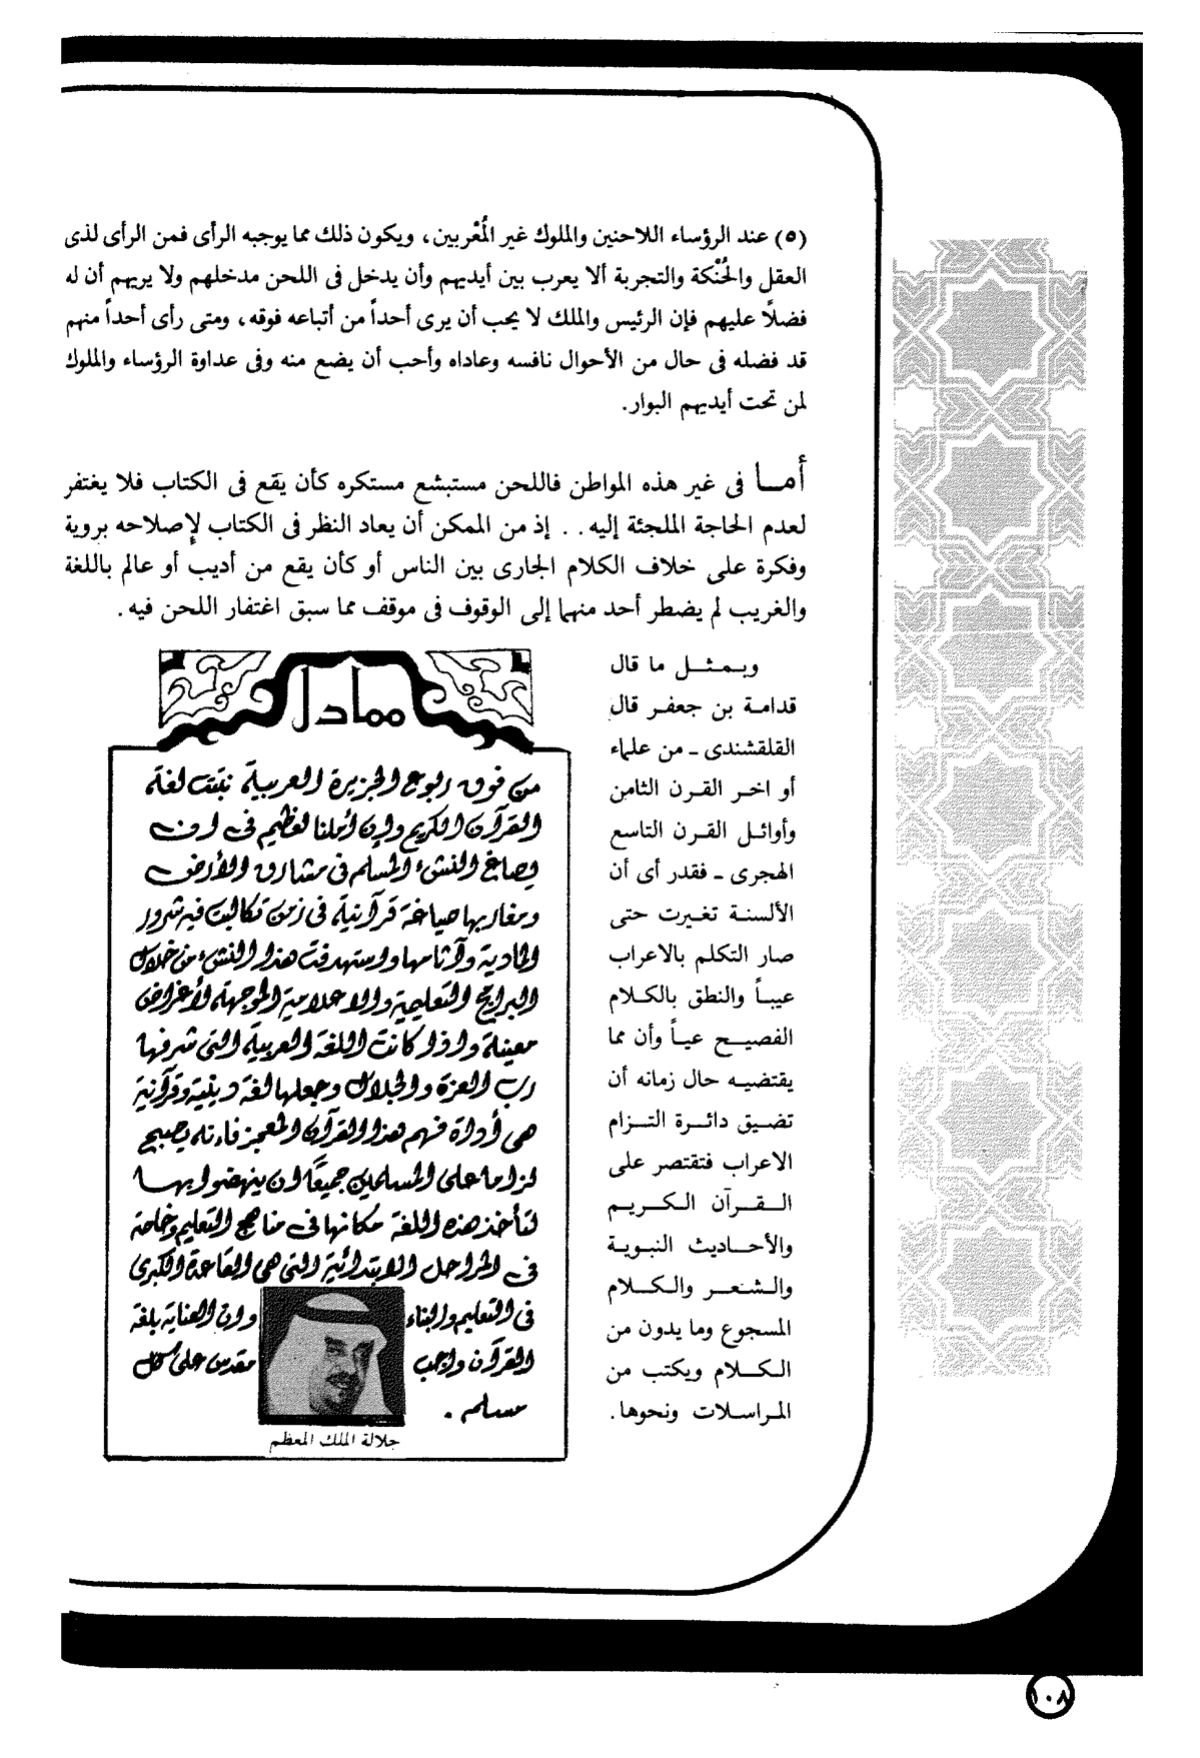 (٥) عند الرؤساء اللاحنين والملوك غير المُعْربين، ويكون ذلك مما يوجبه الرأى فمن الرأى لذى
العقل والحُنْكة والتجربة ألا يعرب بين أيديهم وأن يدخل فى اللحن مدخلهم ولا يريهم أن له
فضلاً عليهم فإن الرئيس والملك لا يحب أن يرى أحداً من أتباعه فوقه، ومتى رأى أحداً منهم
قد فضله فى حال من الأحوال نافسه وعاداه وأحب أن يضع منه وفى عداوة الرؤساء والملوك
لمن تحت أيديهم البوار.
أما فى غير هذه المواطن فاللحن مستبشع مستكره كأن يقع فى الكتاب فلا يغتفر
لعدم الحاجة الملجئة إليه . . إذ من الممكن أن يعاد النظر فى الكتاب لإصلاحه بروية
وفكرة على خلاف الكلام الجارى بين الناس أو كأن يقع من أديب أو عالم باللغة
والغريب لم يضطر أحد منهما إلى الوقوف فى موقف مما سبق اغتفار اللحن فيه.
وبمثل ما قال
قدامة بن جعفر قال
القلقشندى ـ من علماء
أو اخر القرن الثامن
وأوائل القرن التاسع
الهجرى ـ فقدر أى أن
الألسنة تغيرت حتى
صار التكلم بالاعراب
عيباً والنطق بالكلام
الفصيح عياً وأن مما
يقتضيه حال زمانه أن
تضيق دائرة التزام
الاعراب فتقتصر على
القرآن الكريم
والأحاديث النبوية
والشعر والكلام
المسجوع وما يدون من
الكلام ويكتب من
المراسلات ونحوها.
من فوق ربوع الجزيرة العربية نبتت لغة
القرآن الكريم وإن أملنا لعظيم فى ان
يصاغ النشء المسلم فى مشارق الأرض
ومغاربها صياغة قرآنية فى زمن تكالبت فيه شرور
المادية وآثامها واستهدفت هذا النشء من خلال
البرامج التعليمية والاعلامية الموجهة لأغراض
معينة واذا كانت اللغة العربية التى شرفها
رب العزة والجلال وجعلها لغة دينية وقرآنية
هى أداة فهم هذا القرآن المعجز فانه يصبح
لزاما على المسلمين جميعًا ان ينهضوا بها
لتأخذ هذه اللغة مكانها فى مناهج التعليم وخاصة
فى المراحل الابتدائية التى هى القاعدة الكبرى
فى التعليم والبناء وان العناية بلغة
القرآن واجب مقدس على كل
مسلم .
جلالة الملك المعظم
١٠٨